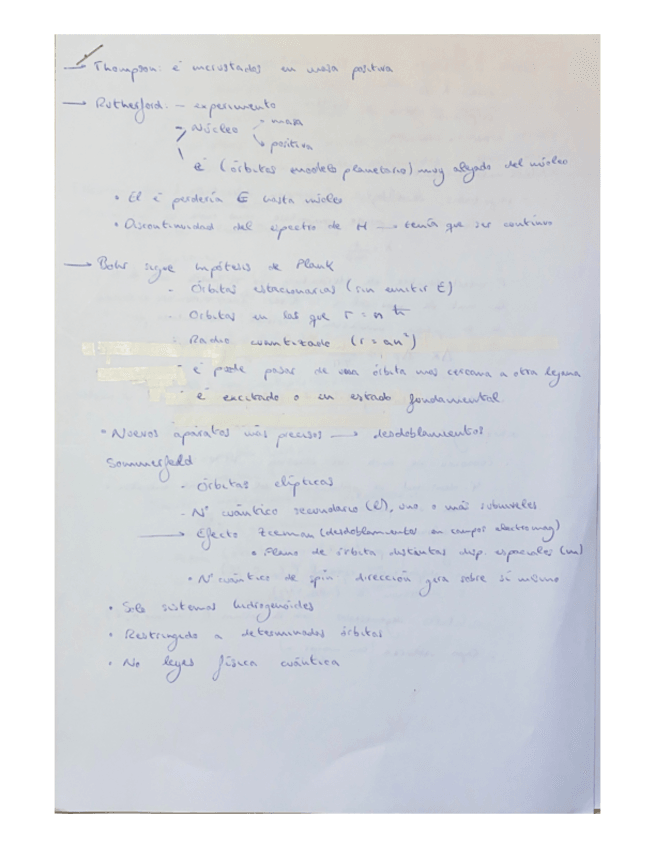 → Thompson: é incrustados en masa positiva
→ Rutherford: - experimento
- Núcleo - masa
↳ positiva
é (órbitas modelo planetario) muy alejado del núcleo
• El é perdería E hasta núcleo
• Discontinuidad del espectro de H → tenía que ser continuo
→ Bohr sigue hipótesis de Plank
- Órbitas estacionarias (sin emitir E)
- Orbitas en las que r = n ħ
- Radio cuantizado (r = an²)
- é puede pasar de una órbita mas cercana a otra lejana
- é excitado o en estado fundamental
• Nuevos aparatos más precisos → desdoblamientos
Sommerfeld
- órbitas elípticas
- Nº cuántico secundario (l), uno o más subniveles
→ Efecto Zeeman (desdoblamientos en campos electromag)
• Plano de órbita distintas disp. espaciales (m)
• Nº cuántico de spin dirección gira sobre sí mismo
• Solo sistemas hidrogenóides
• Restringido a determinadas órbitas
• No leyes física cuántica